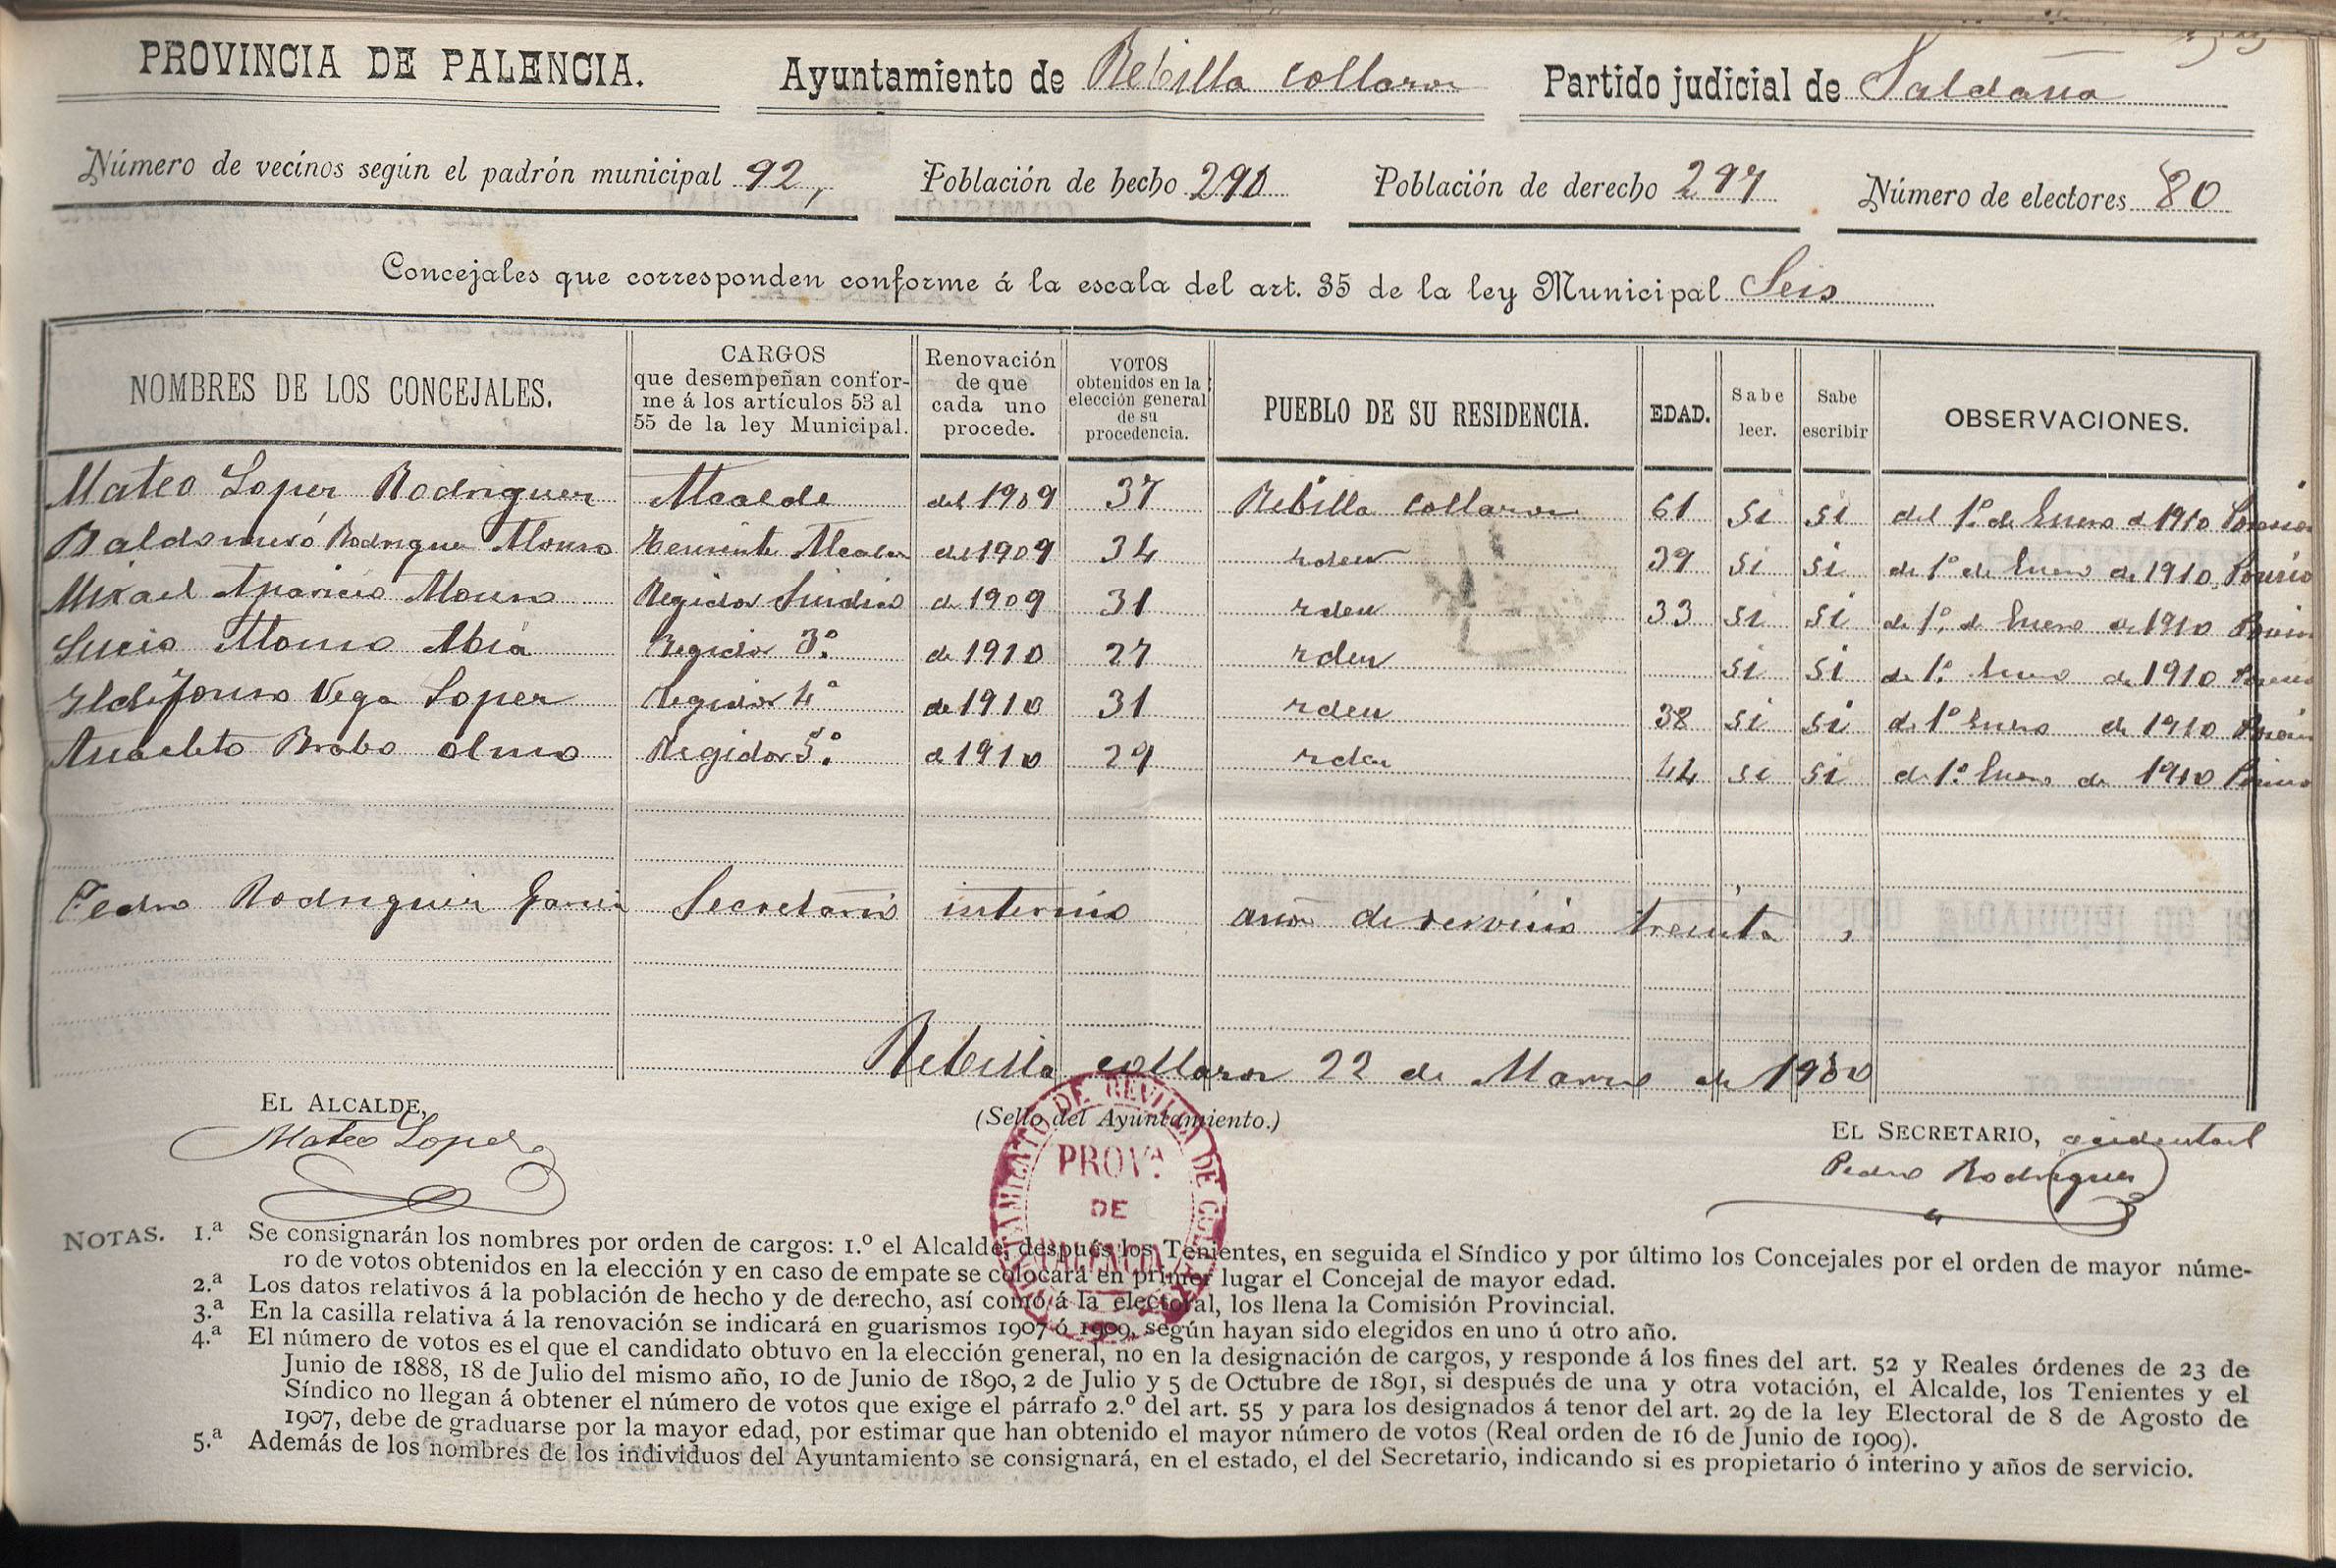 PROVINCIA DE PALENCIA. Ayuntamiento de Rebilla Collazos Partido judicial de Saldaña
Número de vecinos según el padrón municipal 92, Población de hecho 290 Población de derecho 297 Número de electores 80
Concejales que corresponden conforme á la escala del art. 35 de la ley Municipal Seis
NOMBRES DE LOS CONCEJALES. CARGOS que desempeñan confor-me á los artículos 53 al 55 de la ley Municipal. Renovación de que cada uno procede. VOTOS obtenidos en la elección general de su procedencia. PUEBLO DE SU RESIDENCIA. EDAD. Sabe leer. Sabe escribir OBSERVACIONES.
Mateo Lopez Rodriguez Alcalde del 1909 37 Rebilla Collazos 61 si si del 1º de Enero d 1910
Baldomero Rodriguez Alonso Teniente Alcalde del 1909 34 idem 39 si si de 1º de Enero de 1910
Misael Aparicio Alonso Regidor Sindico d 1909 31 idem 33 si si de 1º de Enero de 1910
Lucio Alonso Abia Regidor 3º de 1910 27 idem si si de 1º Enero de 1910
Ildefonso Vega Lopez Regidor 4º de 1910 31 idem 38 si si de 1º Enero de 1910
Anacleto Brabo Olmo Regidor 5º d 1910 29 idem 44 si si de 1º Enero de 1910
Pedro Rodriguez Garcia Secretario interino años de servicio treinta
Rebilla Collazos 22 de Marzo de 1910
EL ALCALDE, (Sello del Ayuntamiento.) EL SECRETARIO, accidental
Mateo Lopez Pedro Rodriguez
AYUNTAMIENTO DE REVILLA DE COLLAZOS
PROV.ª
DE
PALENCIA
NOTAS. 1.ª Se consignarán los nombres por orden de cargos: 1.º el Alcalde; después los Tenientes, en seguida el Síndico y por último los Concejales por el orden de mayor núme-
ro de votos obtenidos en la elección y en caso de empate se colocará en primer lugar el Concejal de mayor edad.
2.ª Los datos relativos á la población de hecho y de derecho, así como á la electoral, los llena la Comisión Provincial.
3.ª En la casilla relativa á la renovación se indicará en guarismos 1907 ó 1909, según hayan sido elegidos en uno ú otro año.
4.ª El número de votos es el que el candidato obtuvo en la elección general, no en la designación de cargos, y responde á los fines del art. 52 y Reales órdenes de 23 de
Junio de 1888, 18 de Julio del mismo año, 10 de Junio de 1890, 2 de Julio y 5 de Octubre de 1891, si después de una y otra votación, el Alcalde, los Tenientes y el
Síndico no llegan á obtener el número de votos que exige el párrafo 2.º del art. 55 y para los designados á tenor del art. 29 de la ley Electoral de 8 de Agosto de
1907, debe de graduarse por la mayor edad, por estimar que han obtenido el mayor número de votos (Real orden de 16 de Junio de 1909).
5.ª Además de los nombres de los individuos del Ayuntamiento se consignará, en el estado, el del Secretario, indicando si es propietario ó interino y años de servicio.